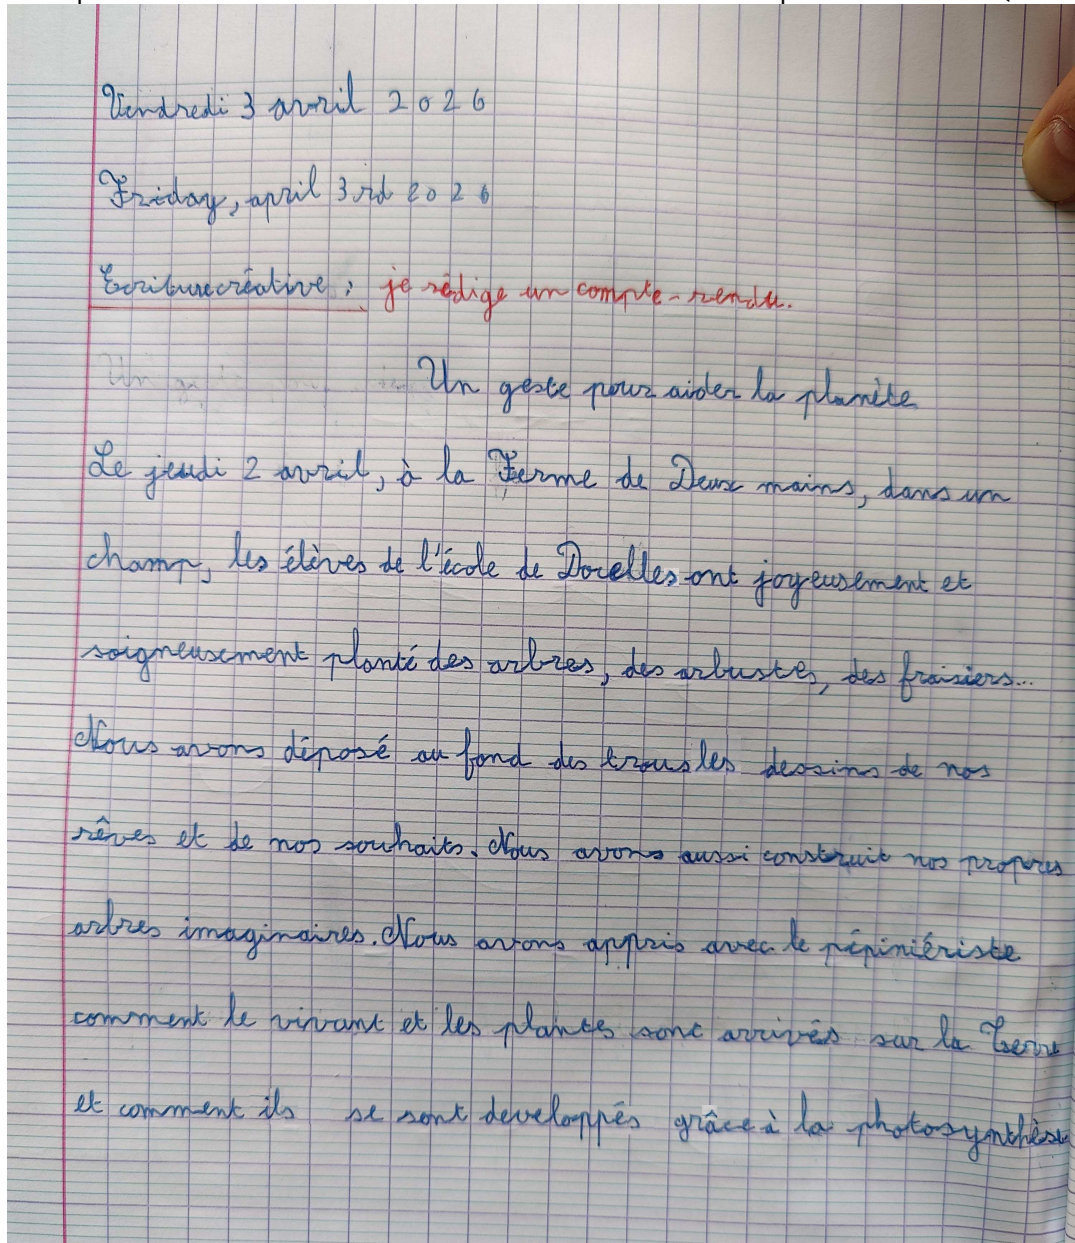 Vendredi 3 avril 2026
Friday, april 3rd 2026
Ecriture créative : je rédige un compte-rendu.
Un geste pour aider la planète
Le jeudi 2 avril, à la Ferme de Deux mains, dans un
champ, les élèves de l'école de Docelles ont joyeusement et
soigneusement planté des arbres, des arbustes, des fraisiers...
Nous avons déposé au fond des trous les dessins de nos
rêves et de nos souhaits. Nous avons aussi construit nos propres
arbres imaginaires. Nous avons appris avec le pépiniériste
comment le vivant et les plantes sont arrivés sur la Terre
et comment ils se sont developpés grâce à la photosynthèse